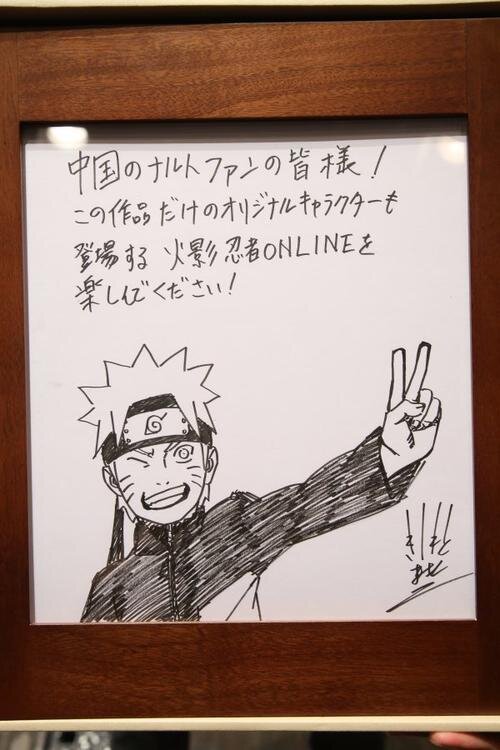 中国のナルトファンの皆様!
この作品だけのオリジナルキャラクターも
登場する 火影忍者ONLINEを
楽しんでください!